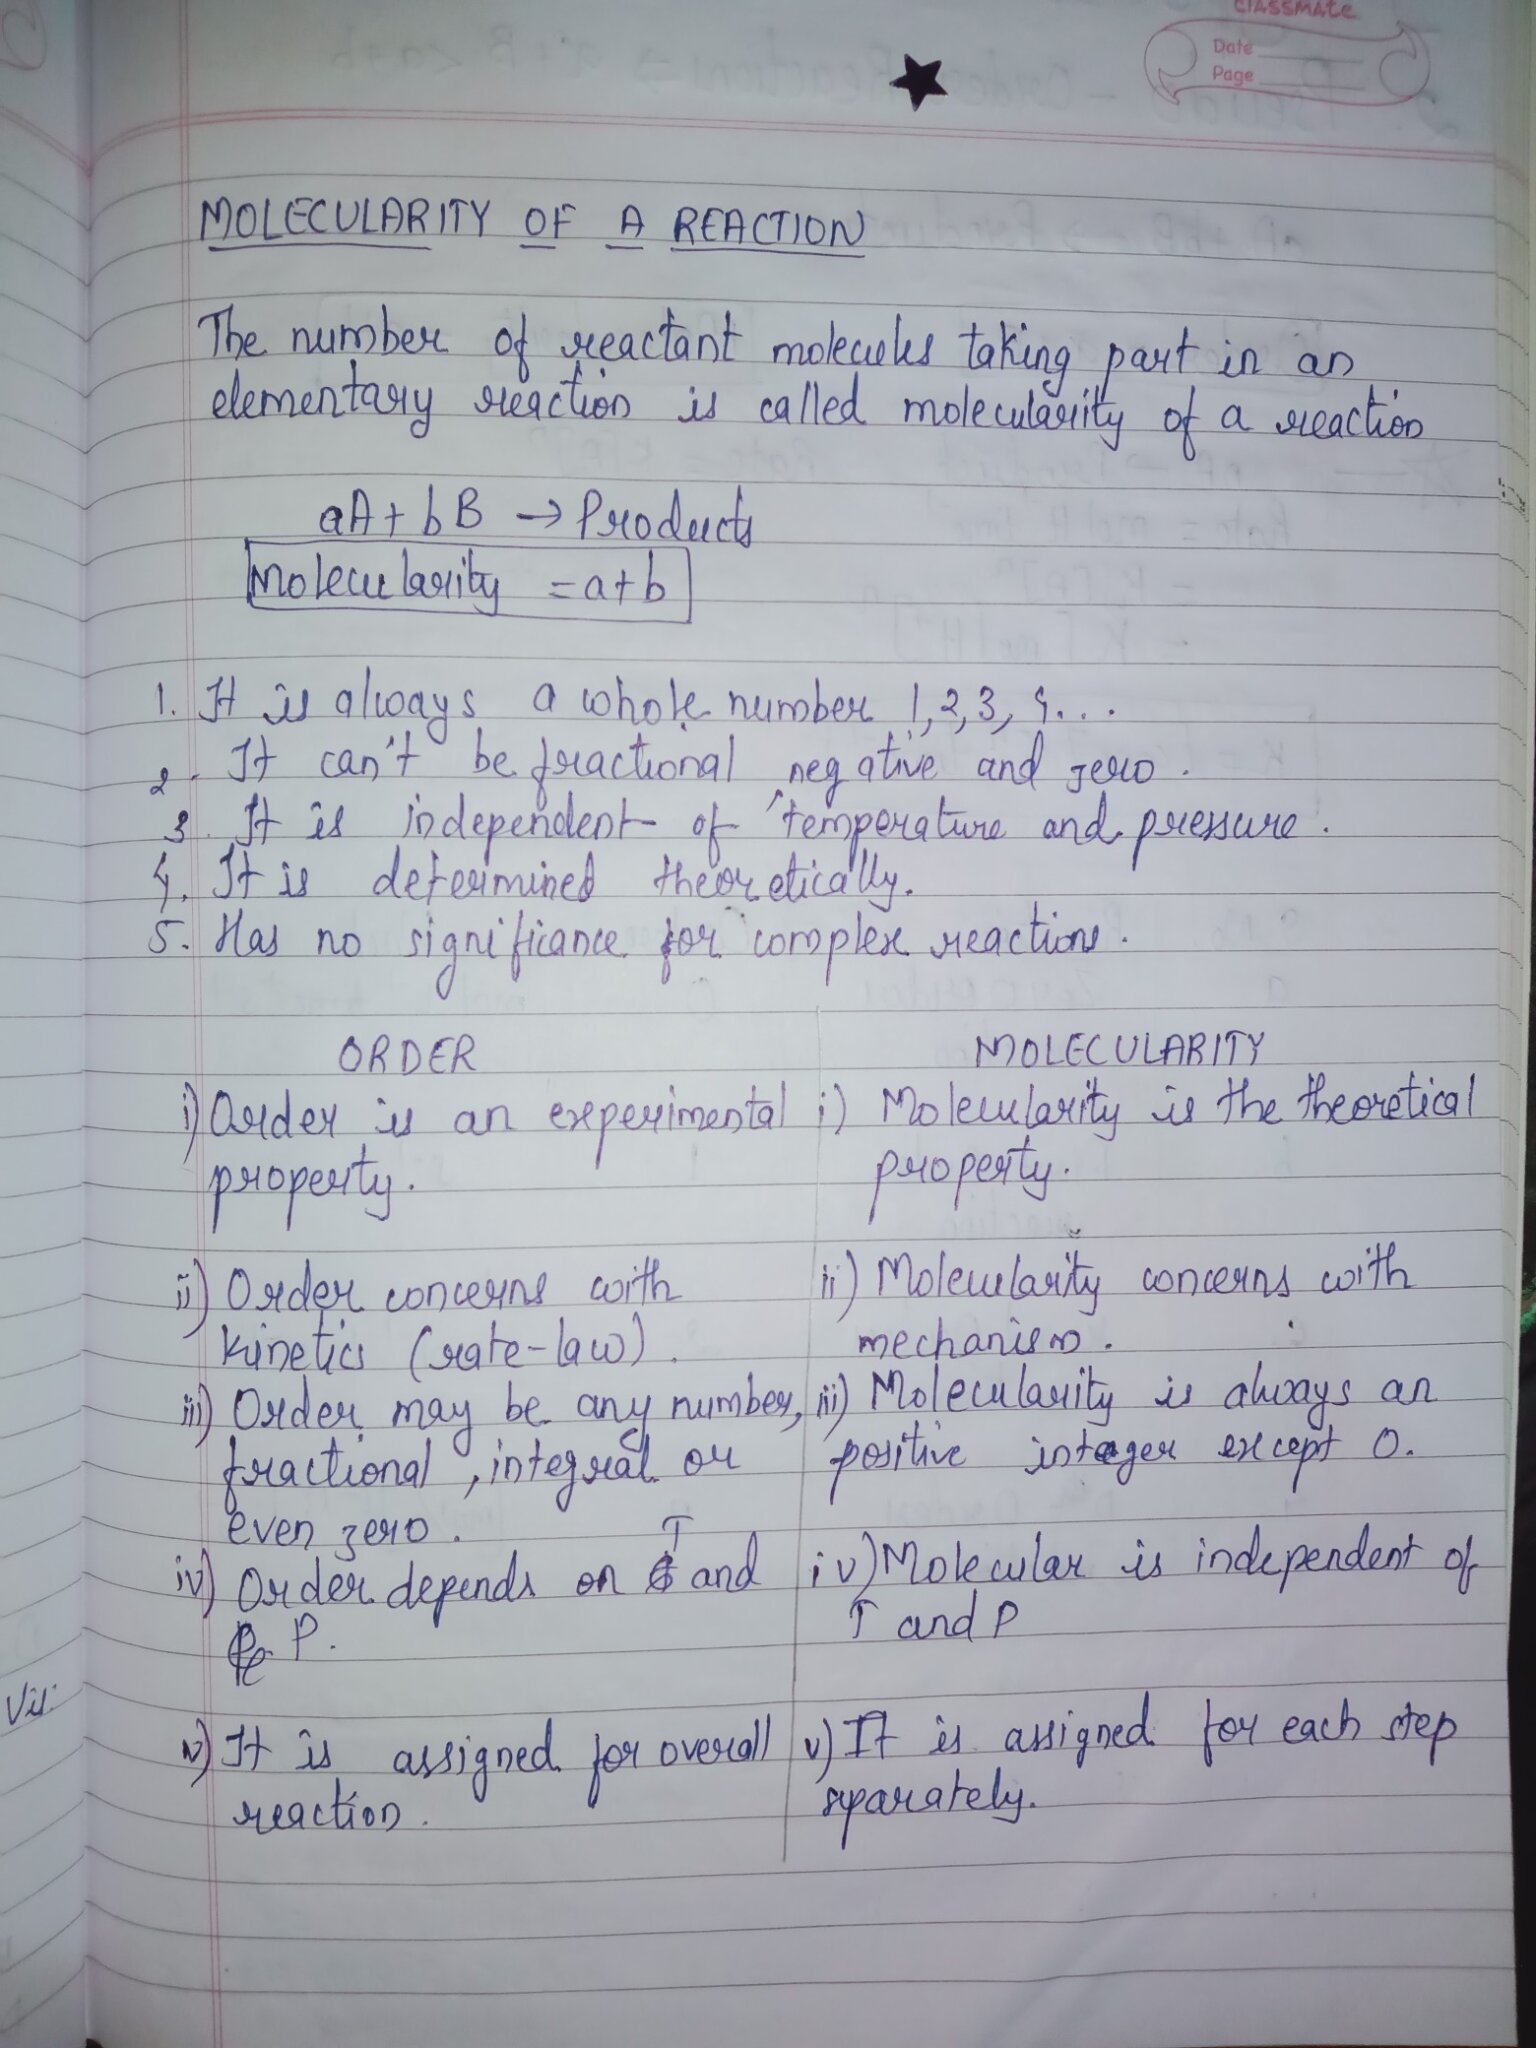 classmate
Date
Page
MOLECULARITY OF A REACTION
The number of reactant molecules taking part in an
elementary reaction is called molecularity of a reaction
aA + bB → Products
Molecularity = a+b
1. It is always a whole number 1, 2, 3, 4...
2. It can't be fractional negative and zero.
3. It is independent of temperature and pressure.
4. It is determined theoretically.
5. Has no significance for complex reactions.
ORDER
i) Order is an experimental
property.
ii) Order concerns with
kinetics (rate-law).
iii) Order may be any number,
fractional, integral or
even zero.
iv) Order depends on T and
P.
v) It is assigned for overall
reaction.
MOLECULARITY
i) Molecularity is the theoretical
property.
ii) Molecularity concerns with
mechanism.
iii) Molecularity is always an
positive integer except 0.
iv) Molecular is independent of
T and P
v) It is assigned for each step
separately.